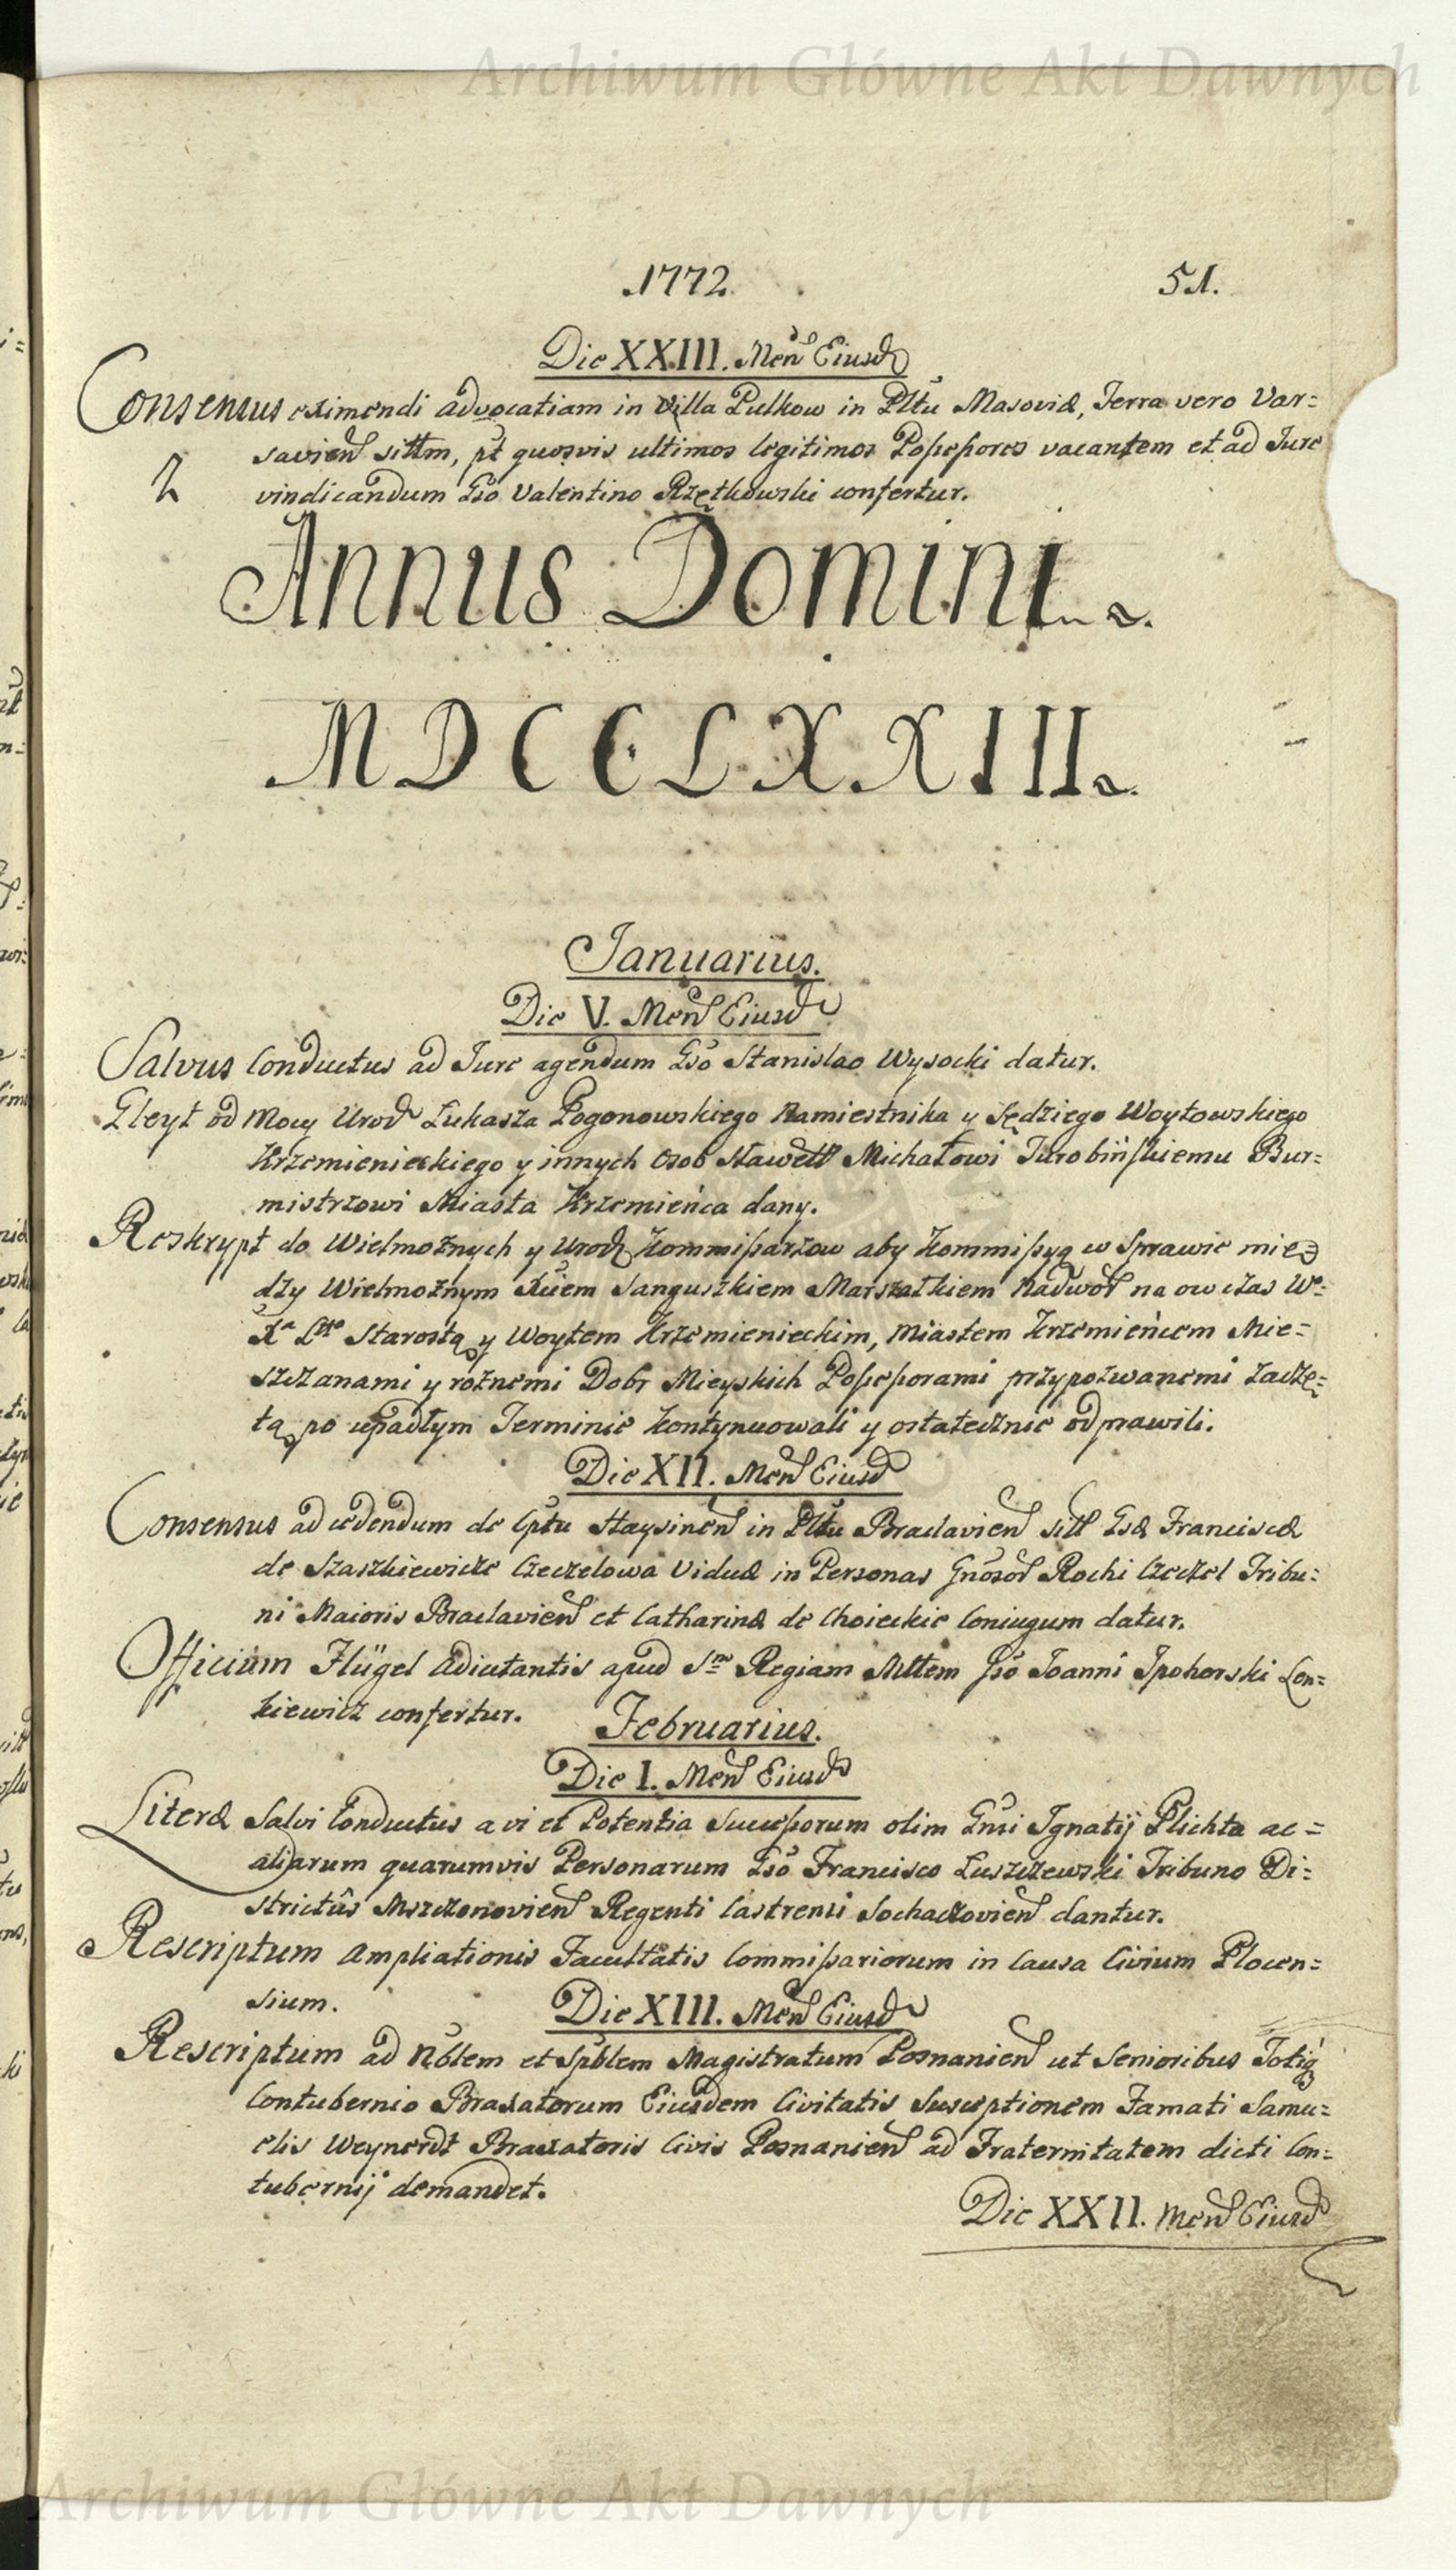 Archiwum Główne Akt Dawnych
1772. 51.
Die XXIII. Men̄ Eiusd
Consensus eximendi advocatiam in Villa Pulkow in Pltu Masoviæ, Terra vero Var=
savien̄ sittm, pt quosvis ultimos legitimos Possessores vacantem et ad Jure
vindicandum Gso Valentino Rzętkowski confertur.
Annus Domini
MDCCLXXIII.
Januarius.
Die V. Men̄ Eiusd
Salvus Conductus ad Jure agendum Gso Stanislao Wysocki datur.
Gleyt od Mocy Urod Łukasza Pogonowskiego Namiestnika y Sędziego Woytowskiego
Krzemienieckiego y innych Osob Sławett Michałowi Turobińskiemu Bur=
mistrzowi Miasta Krzemieńca dany.
Reskrypt do Wielmożnych y Urod Kommissarzow aby Kommissyą w Sprawie mię
dzy Wielmożnym Xciem Sanguszkiem Marszałkiem Nadwor na ow czas W=
Xa Ltto Starostą y Woytem Krzemienieckim, Miastem Krzemieńcem Mie=
szczanami y rożnemi Dobr Mieyskich Possessorami przypozwanemi zaczę=
tą po upadłym Terminie kontynuowali y ostatecznie odprawili.
Die XII. Men̄ Eiusd
Consensus ad cedendum de Cptu Haysinen̄ in Pltu Braclavien̄ sitt Gsæ Franciscæ
de Szaszkiewicze Czeczelowa Viduæ in Personas Gnosor Rochi Czeczel Tribu=
ni Maioris Braclavien̄ et Catharinæ de Choieckie Coniugum datur.
Officium Flügel Adiutantis apud Sm Regiam Mttem Gso Joanni Spohorski Len=
kiewicz confertur.
Februarius.
Die I. Men̄ Eiusd
Literæ Salvi Conductus a vi et Potentia Successorum olim Gnsi Ignatij Plichta ac=
aliarum quarumvis Personarum Gso Francisco Luszczewski Tribuno Di=
strictûs Mszczonovien̄ Regenti Castrensi Sochaczovien̄ dantur.
Rescriptum Ampliationis Facultatis Commissariorum in Causa Civium Plocen=
sium.
Die XIII. Men̄ Eiusd
Rescriptum ad Nblem et Spblem Magistratum Posnanien̄ ut Senioribus Totiq
Contubernio Braxatorum Eiusdem Civitatis Susceptionem Famati Samu=
elis Weynerdt Braxatoris Civis Posnanien̄ ad Fraternitatem dicti Con=
tubernij demandet.
Die XXII. Men̄ Eiusd
Archiwum Główne Akt Dawnych